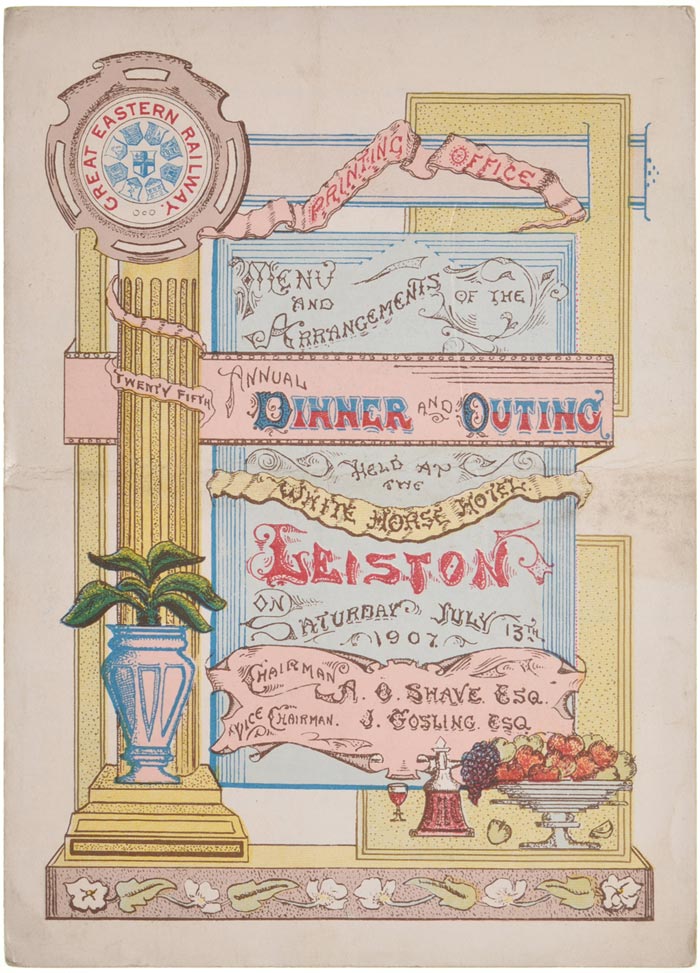 GREAT EASTERN RAILWAY.
PRINTING OFFICE
MENU
AND
ARRANGEMENTS OF THE
TWENTY FIFTH
ANNUAL
DINNER AND OUTING
HELD AT
THE
WHITE HORSE HOTEL.
LEISTON
ON
SATURDAY JULY 13TH
1907.
CHAIRMAN A. O. SHAVE. ESQ.
VICE CHAIRMAN. J. GOSLING. ESQ.